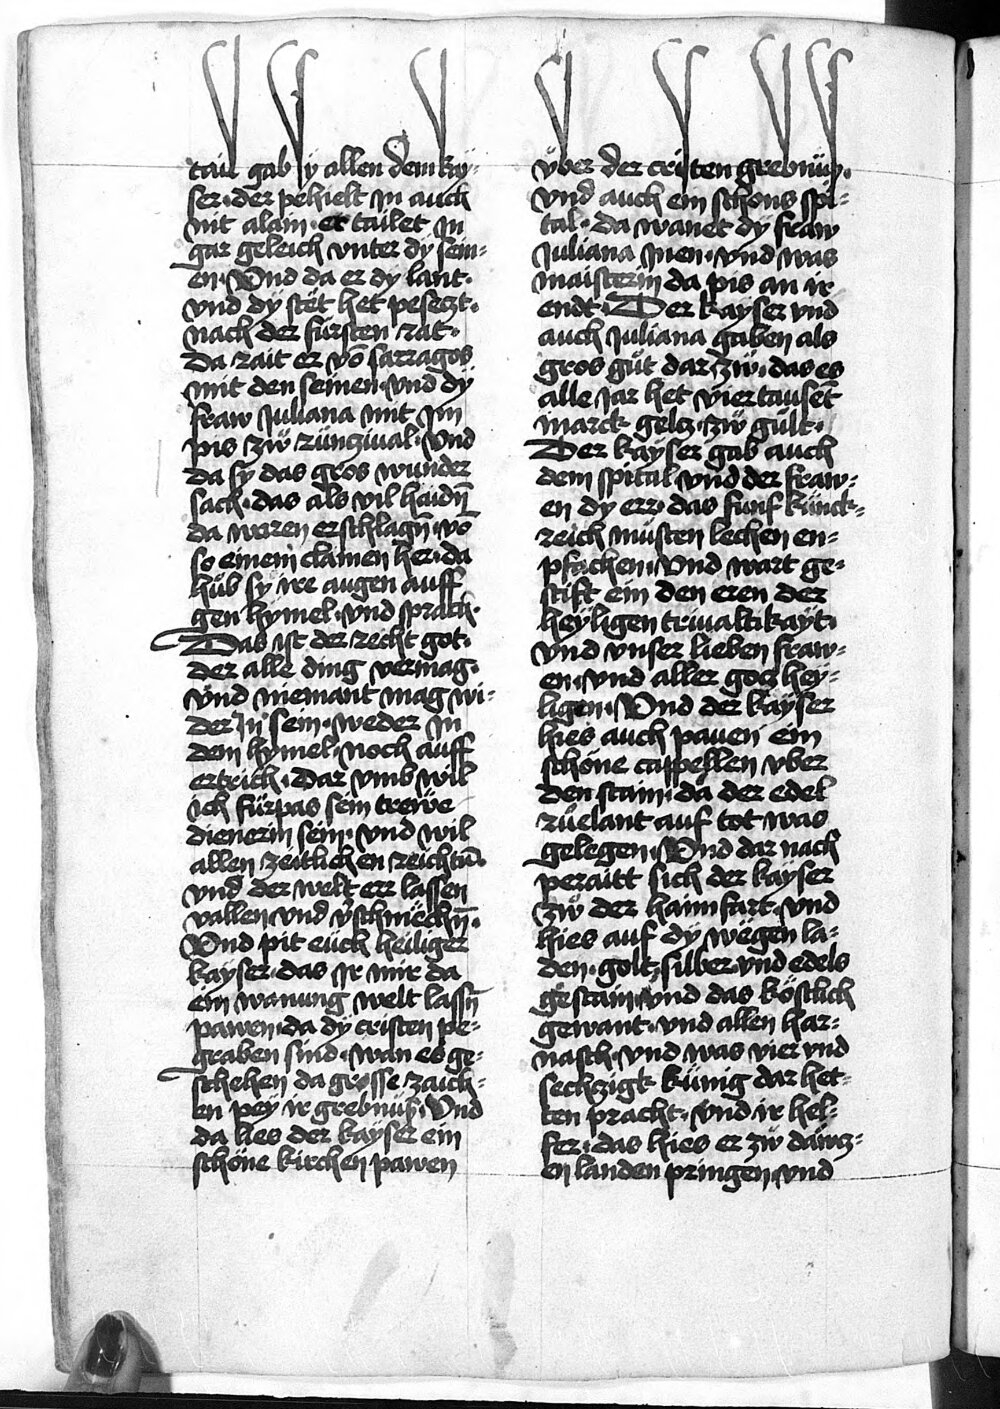 tail gab sy allen dem kay-
ser · der pehielt jn auch
nit alain · er tailet jn
gar geleich vnter dy sein-
en · Vnd da er dy lant ·
vnd dy stët het peseczt ·
nach der fursten rat ·
da rait er vō sarragos
mit den seinen · vnd dy
fraw juliana mit jm
pis zw̎ rünziual · Vnd
da sy das gros wunder
sach · das als vil haidn̄
da waren erschlagn̄ · vō
so einem clainen her · da
hůb sy ire augen auff
gen hymel · vnd sprach ·
Das ist der recht got ·
der alle ding vermag ·
vnd niemant mag wi-
der jn sein · weder jn
dem hymel · noch auff
ertrich · Dar vmb wil
ich fürpas sein trewe
dienerin sein · vnd wil
allen zeitlichen reichtū ·
vnd der welt err lassen
vallen vnd v̄schmëchn̄ ·
Vnd pit eüch heiliger
kayser · das jr mir da
ein wanung welt lassn̄
pawen · da dy cristen pe-
graben sind · wan es ge-
schehen da grosse zaich-
en pey ir grebnüs · Vnd
da lies der kayser ein
schöne kirchen pawen
vber der cristen grebnüs ·
vnd auch ein schöns spi-
tal · da wanet dy fraw
juliana jnen · vnd was
maisterin da pis an ir
endt · Der kayser vnd
auch juliana gaben als
gros gůt dar zw̎ · das es
alle jar het viertausēt
marck gelcz · zw̎ gült ·
Der kayser gab auch
dem spital · vnd der fraw-
en dy err · das funf künck-
reich müsten lechen en-
pfachen · Vnd wart ge-
stift ein den eren der
heyligen triualtikayt ·
vnd vnser lieben fraw-
en · vnd aller gocz hey-
ligen · Vnd der kayser
hies auch pauen ein
schöne cappellen vber
den stain · da der edel
rüelant auf tot was
gelegen · Vnd dar nach
peraitt sich der kayser
zw̎ der haimfart · vnd
hies auf dy wëgen la-
den · golt · silber · vnd edels
gestain · vnd das köstlich
gewant · vnd allen har-
nasch · vnd was vier vnd
sechzigk künig dar het-
ten pracht · vnd ir hel-
fer · das hies er zw̎ däwcz-
en landen pringen · vnd